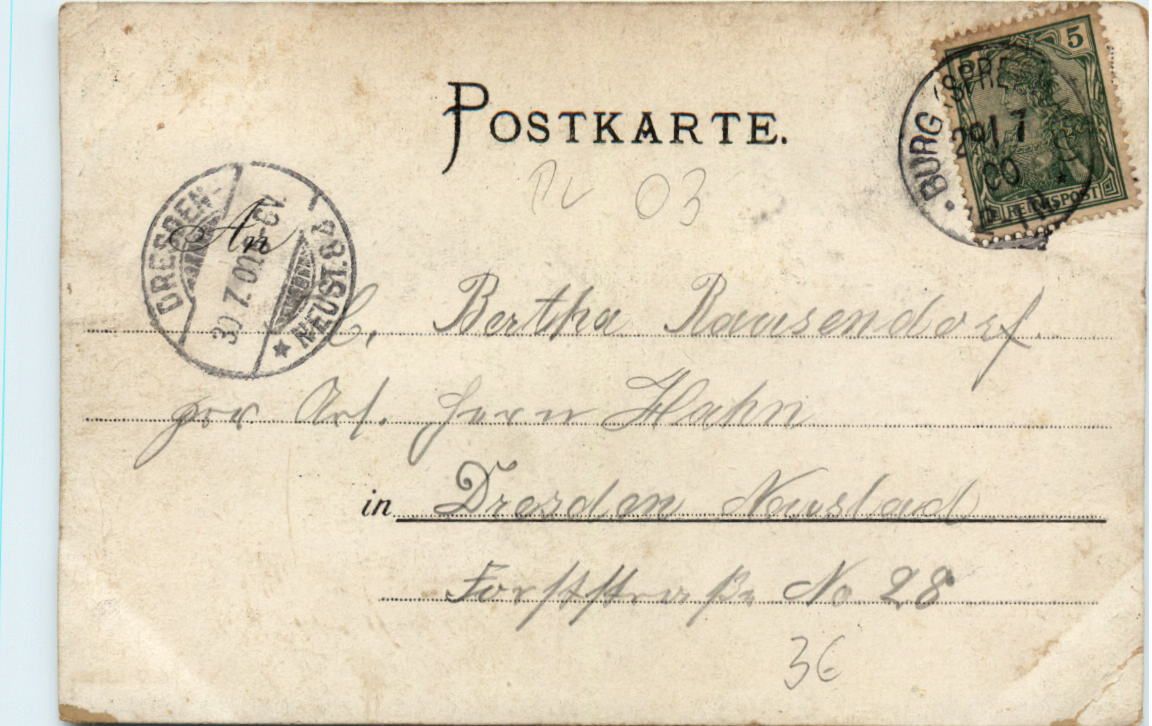 POSTKARTE.
5
REICHSPOST
BURG (SPRE
29. 7
00
03
DRESDEN-
NEUST. 8
30 7. 00
An
Bertha Rausendorf.
per Adr. Herrn Hahn
in Dresden Neustad
Forststraße No 28
3€